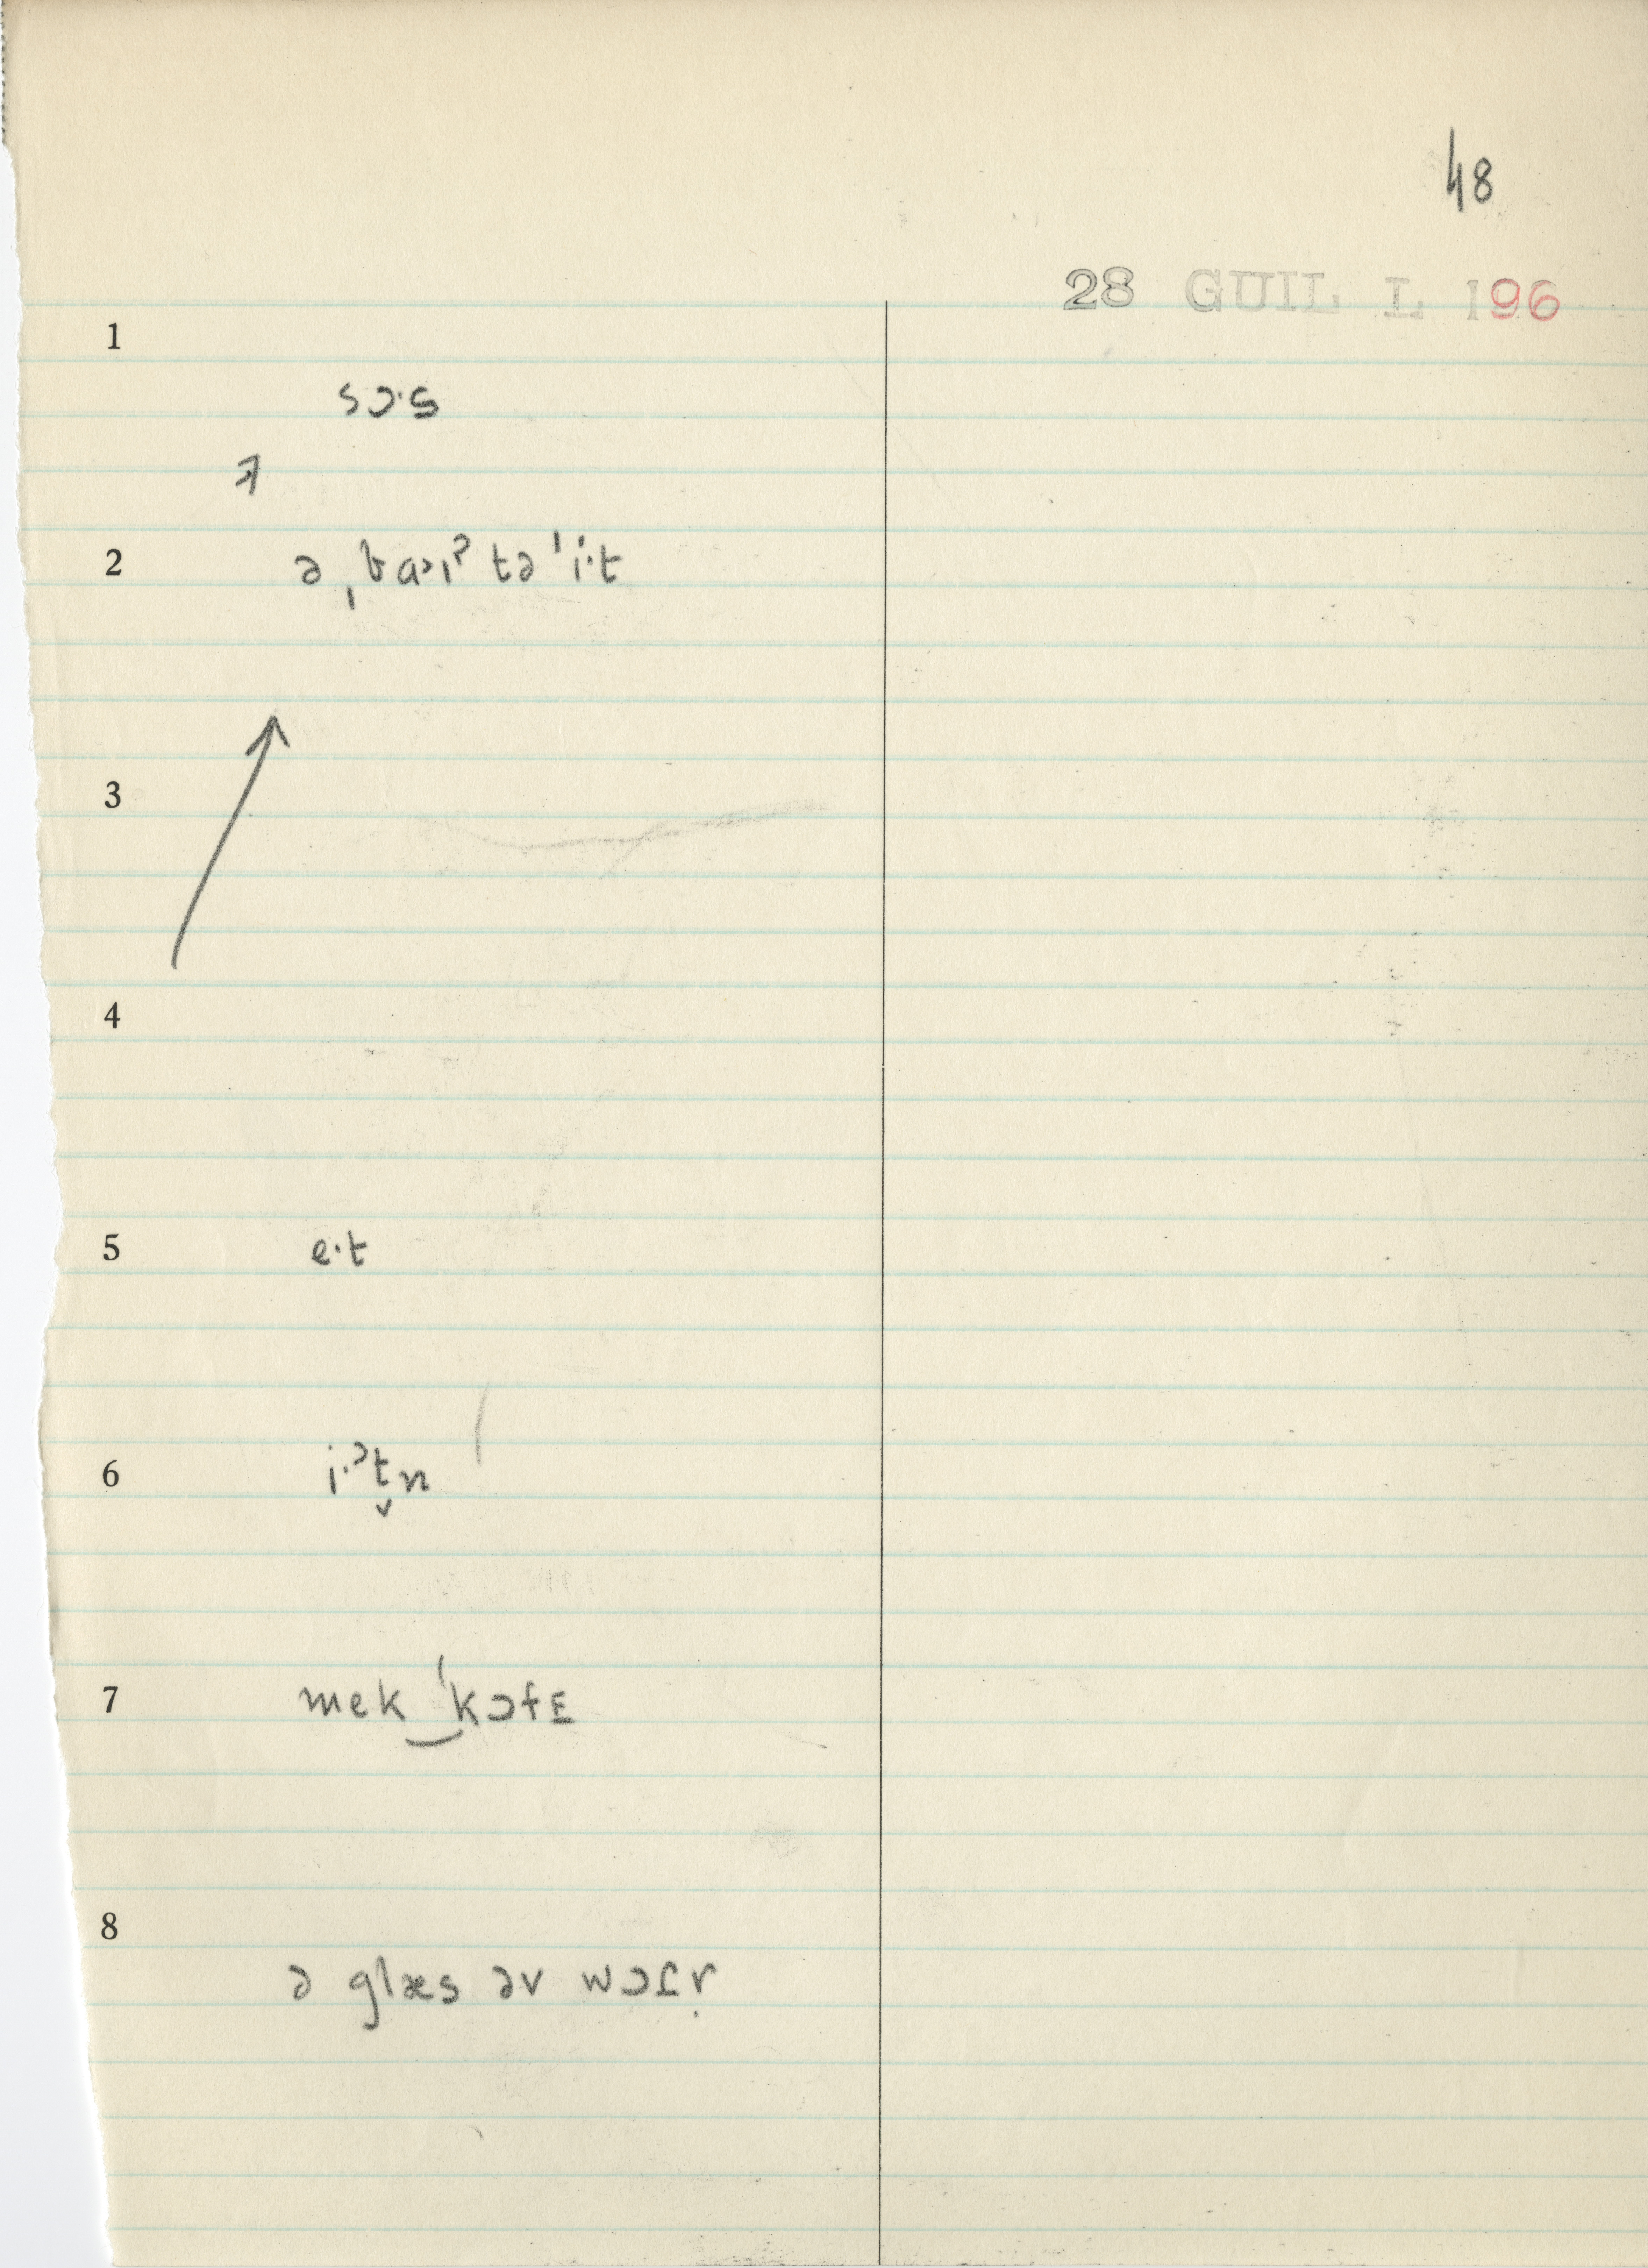 48
28 GUIL L 196
1
sɔ·s
2
ə ˌba>ıˀ tə ˈi·t
3
4
5
e·t
6
i·ˀt̬n
7
mek‿ˈkɔfᴇ
8
ə glæs əv wɔɾr̩